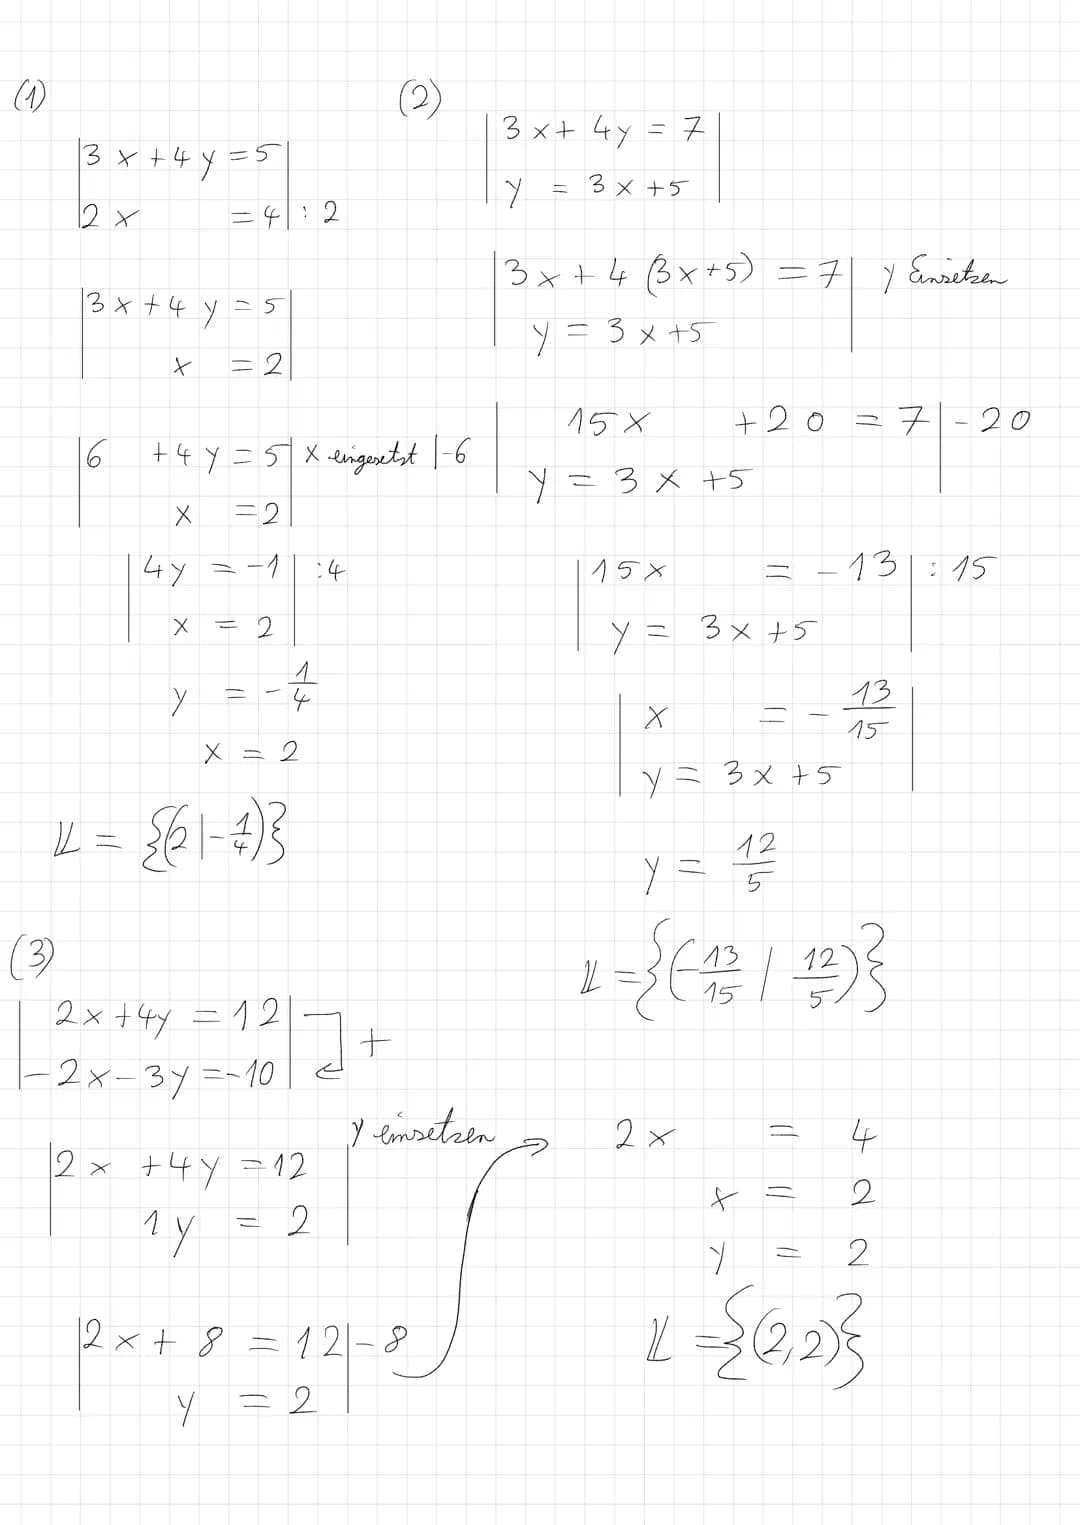 (1)
|3x + 4y = 5|
|2x = 4| : 2
|3x + 4y = 5|
| x = 2|
|6 + 4y = 5| x eingesetzt |-6
| x = 2|
|4y = -1| :4
| x = 2|
y = -1/4
x = 2
𝕃 = {(2|-1/4)}
(2)
|3x + 4y = 7|
|y = 3x +5|
|3x + 4(3x+5) = 7| y Einsetzen
|y = 3x +5|
|15x +20 = 7| -20
|y = 3x +5|
|15x = -13| : 15
|y = 3x +5|
|x = -13/15|
|y = 3x +5|
y = 12/5
𝕃 = {(-13/15 | 12/5)}
(3)
|2x + 4y = 12|
|-2x - 3y = -10| +
|2x + 4y = 12| y einsetzen
|1y = 2|
|2x + 8 = 12| -8
|y = 2|
2x = 4
x = 2
y = 2
𝕃 = {(2,2)}